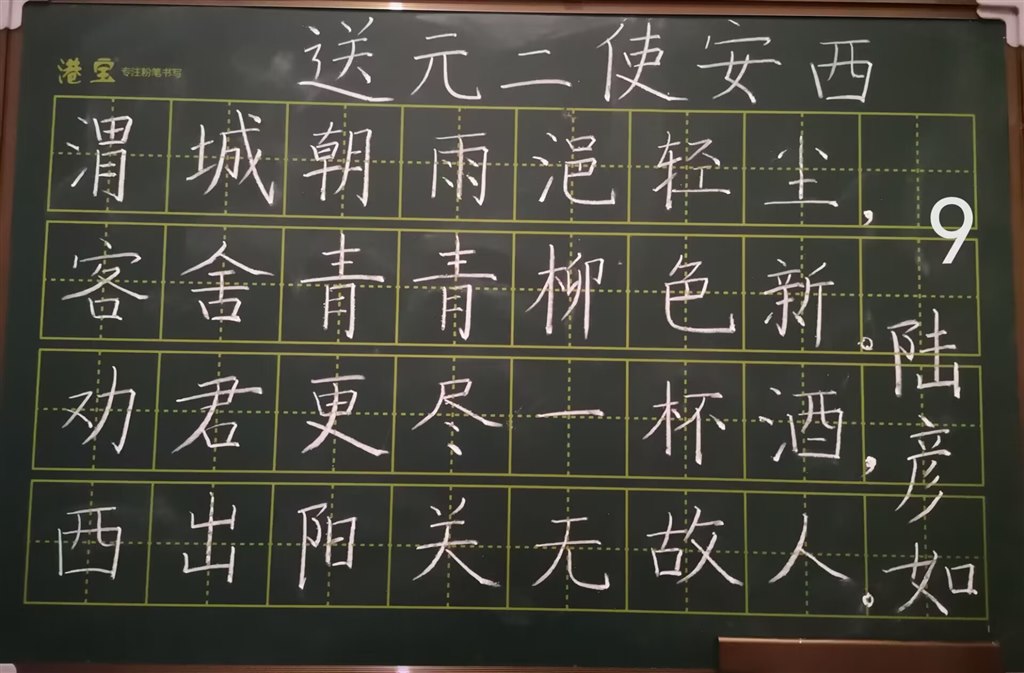 港宝 专注粉笔书写
送元二使安西
渭城朝雨浥轻尘,
客舍青青柳色新。
劝君更尽一杯酒,
西出阳关无故人。
9
陆彦如